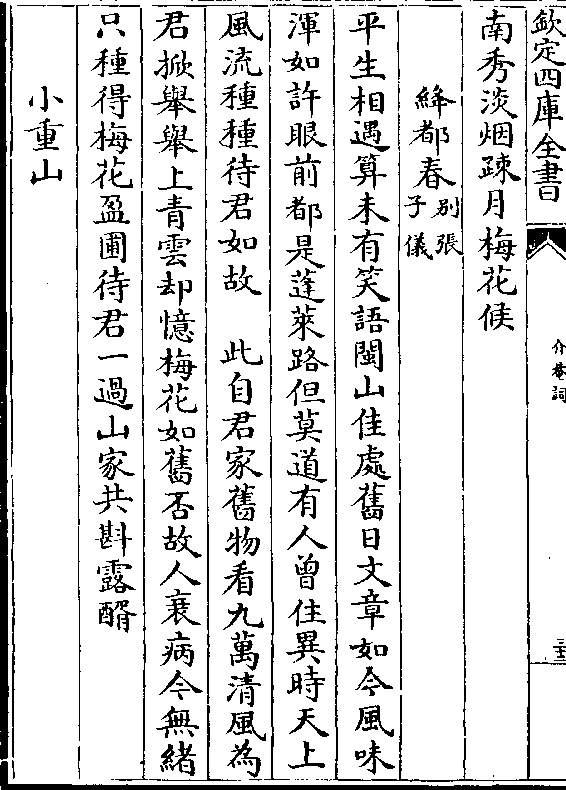 欽定四庫全書
介菴詞
三十三
南秀淡烟疎月梅花候
絳都春別張子儀
平生相遇算未有笑語閩山佳處舊日文章如今風味
渾如許眼前都是蓬萊路但莫道有人曾住異時天上
風流種種待君如故　此自君家舊物看九萬清風為
君掀舉舉上青雲却憶梅花如舊否故人衰病今無緒
只種得梅花盈圃待君一過山家共斟露醑
小重山